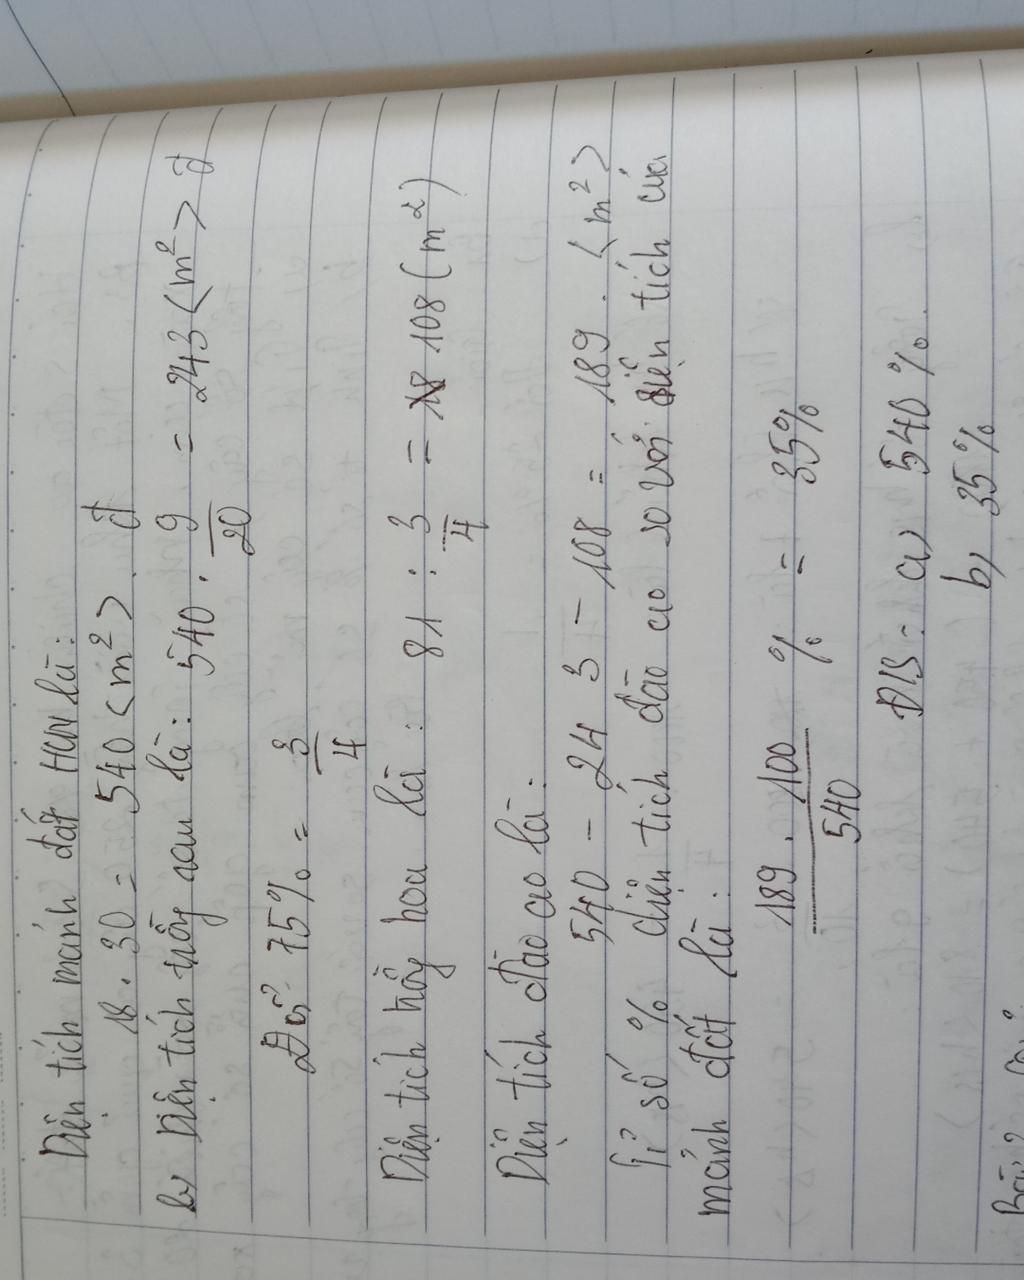 Diện tích mảnh đất HCN là:
18 . 30 = 540 < m² > . đ
b, Diện tích trồng rau là : 540 . 9/20 = 243 < m² > đ
Đổi 75% = 3/4
Diện tích trồng hoa là : 81 : 3/4 = 108 ( m² )
Diện tích đào ao là :
540 - 24 3 - 108 = 189 . < m² >
Tỉ số % diện tích đào ao so với diện tích của
mảnh đất là :
189 . 100 / 540 % = 35%
Đ/S : a) 540 % .
b, 35%